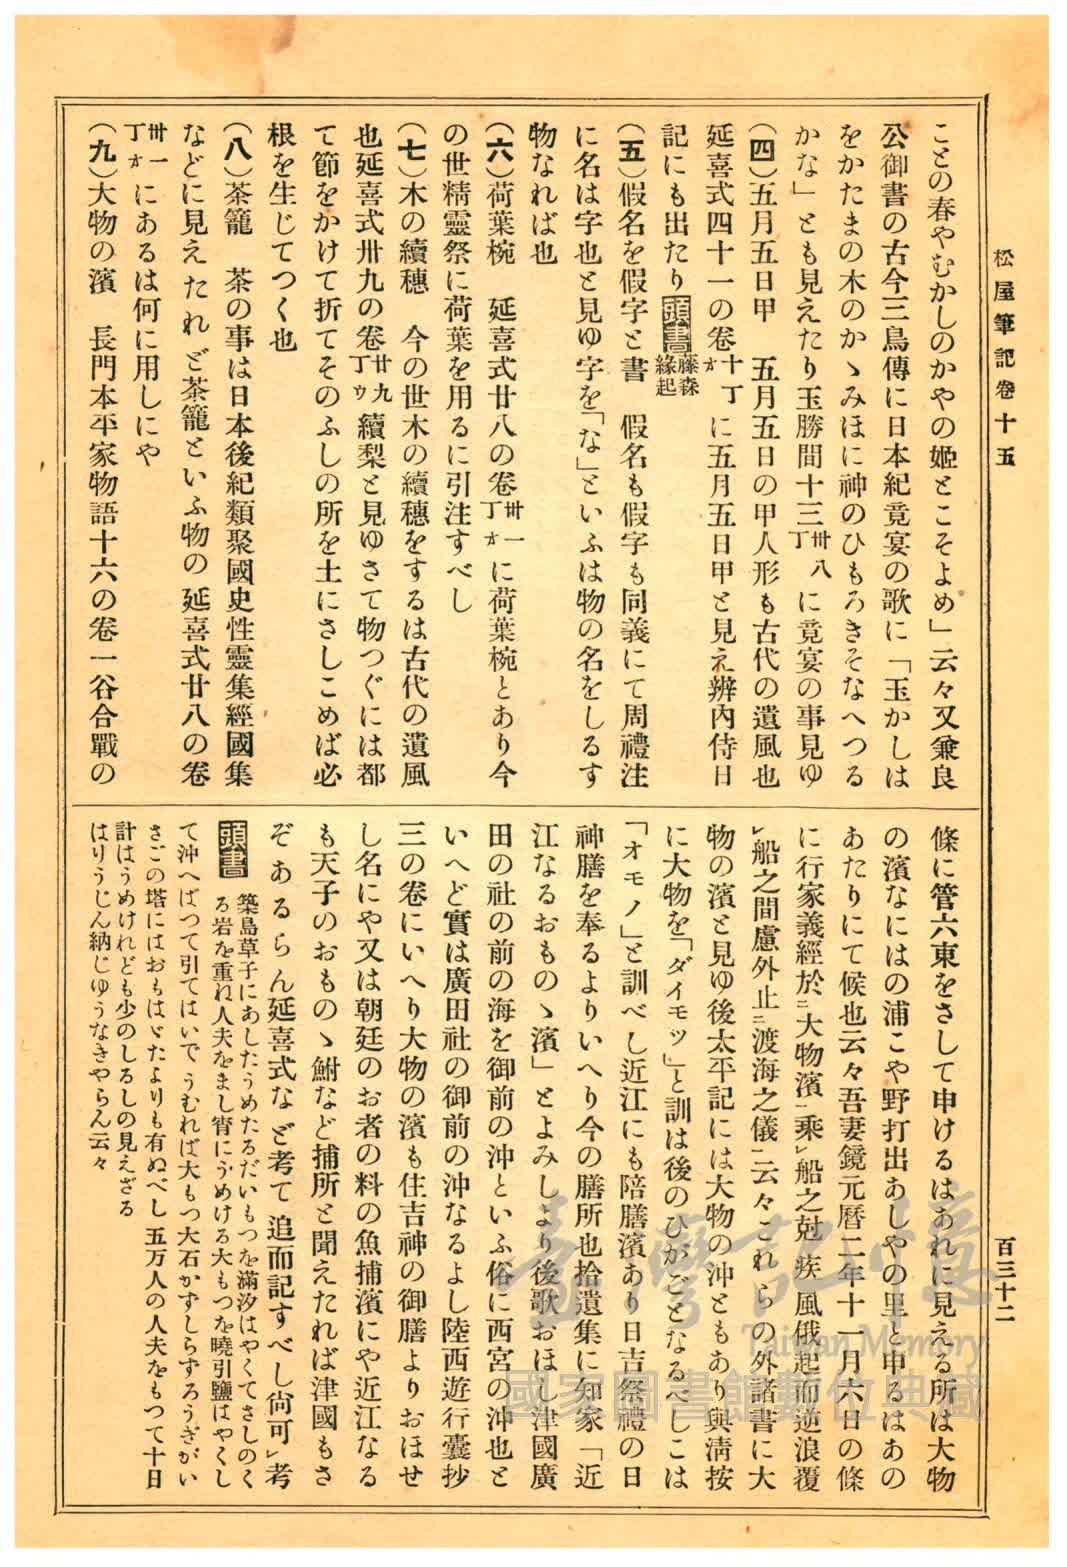 松屋筆記卷十五
百三十二
ことの春やむかしのかやの姫とこそよめ」云々又兼良
公御書の古今三鳥傳に日本紀竟宴の歌に「玉かしは
をかたまの木のかゝみほに神のひもろきそなへつる
かな」とも見えたり玉勝間十三卅八丁に竟宴の事見ゆ
(四)五月五日甲　五月五日の甲人形も古代の遺風也
延喜式四十一の卷十丁ォに五月五日甲と見え辨内侍日
記にも出たり頭書藤森緣起
(五)假名を假字と書　假名も假字も同義にて周禮注
に名は字也と見ゆ字を「な」といふは物の名をしるす
物なれば也
(六)荷葉椀　延喜式廿八の卷卅一丁ォに荷葉椀とあり今
の世精靈祭に荷葉を用るに引注すべし
(七)木の續穗　今の世木の續穗をするは古代の遺風
也延喜式卅九の卷廿九丁ゥ續梨と見ゆさて物つぐには都
て節をかけて折てそのふしの所を土にさしこめば必
根を生じてつく也
(八)茶籠　茶の事は日本後紀類聚國史性靈集經國集
などに見えたれど茶籠といふ物の延喜式廿八の卷
卅一丁ォにあるは何に用しにや
(九)大物の濱　長門本平家物語十六の卷一谷合戰の
條に管六東をさして申けるはあれに見える所は大物
の濱なにはの浦こや野打出あしやの里と申るはあの
あたりにて候也云々吾妻鏡元曆二年十一月六日の條
に行家義經於ニ大物濱一乘レ船之尅疾風俄起而逆浪覆
レ船之間慮外止ニ渡海之儀一云々これらの外諸書に大
物の濱と見ゆ後太平記には大物の沖ともあり與淸按
に大物を「ダイモツ」と訓は後のひがごとなるべしこは
「オモノ」と訓べし近江にも陪膳濱あり日吉祭禮の日
神膳を奉るよりいへり今の膳所也拾遺集に知家「近
江なるおものゝ濱」とよみしより後歌おほし津國廣
田の社の前の海を御前の沖といふ俗に西宮の沖也と
いへど實は廣田社の御前の沖なるよし陸西遊行囊抄
三の卷にいへり大物の濱も住吉神の御膳よりおほせ
し名にや又は朝廷のお者の料の魚捕濱にや近江なる
も天子のおものゝ鮒など捕所と聞えたれば津國もさ
ぞあるらん延喜式など考て追而記すべし尙可レ考
頭書　築島草子にあしたうめたるだいもつを滿汐はやくてさしのく
る岩を重ね人夫をまし宵にうめける大もつを曉引鹽はやくし
て沖へばつて引てはいで うむれば大もつ大石かずしらずろうぎがい
さごの塔にはおもはゞたよりも有ぬべし 五万人の人夫をもつて十日
計はうめけれども少のしるしの見えざる
はりうじん納じゆうなきやらん云々
臺灣記憶
Taiwan Memory
國家圖書館數位典藏